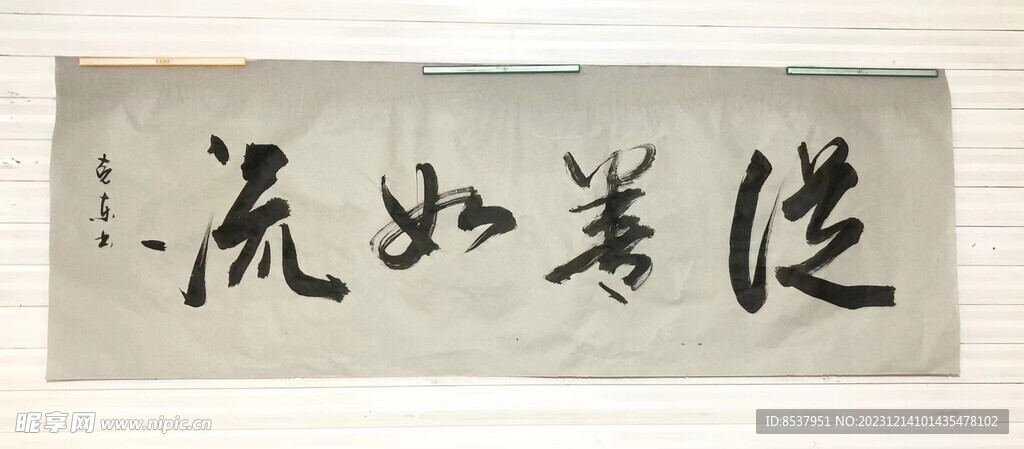 從善如流
克东书
昵享网 www.nipic.cn
ID:8537951 NO:20231214101435478102